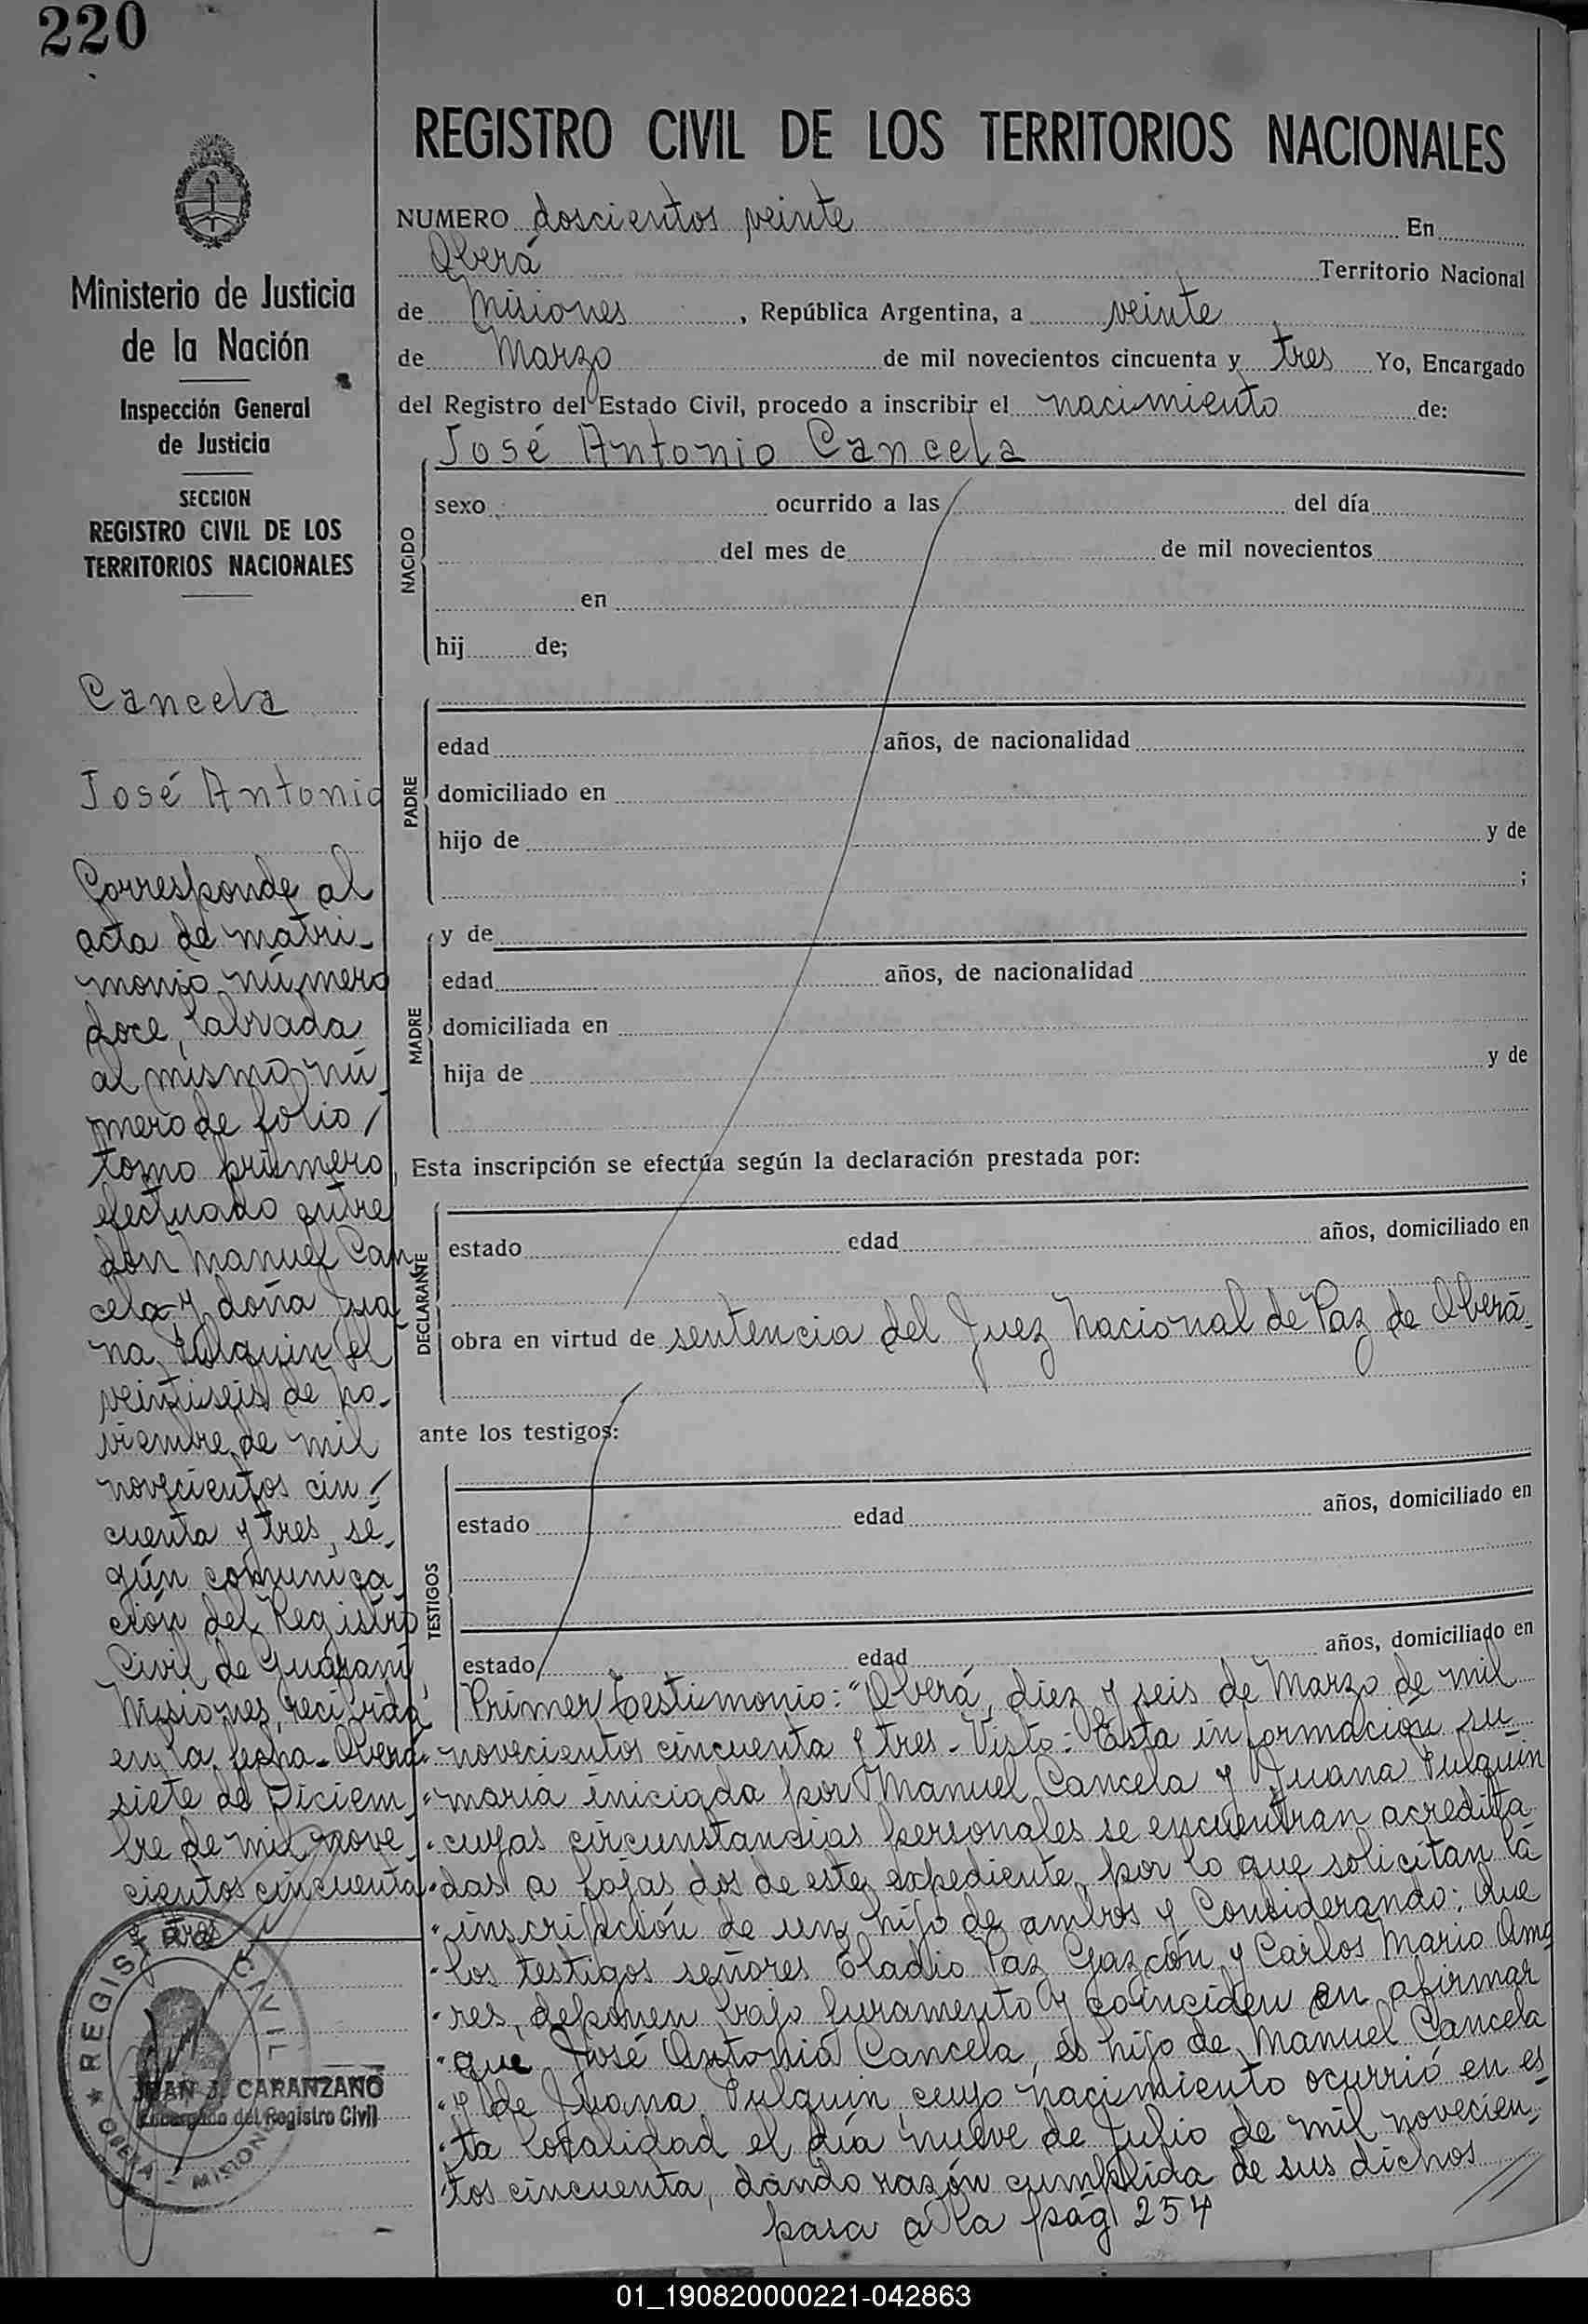 220
Ministerio de Justicia
de la Nación
Inspección General
de Justicia
SECCION
REGISTRO CIVIL DE LOS
TERRITORIOS NACIONALES
Cancela
José Antonio
Corresponde al
acta de matri-
monio número
doce, labrada
al mismo nú
mero de folio,
tomo primero,
efectuado entre
don Manuel Can
cela y doña Jua
na Pulquin el
veintiseis de no-
viembre de mil
novecientos cin-
cuenta y tres, se-
gún comunica
ción del Registro
Civil de Guaraní,
Misiones, recibida
en la fecha. Oberá
siete de Diciem
bre de mil nove-
cientos cincuenta
y tres
REGISTRO CIVIL
OBERA - MISIONES
JUAN J. CARANZANO
Encargado del Registro Civil
REGISTRO CIVIL DE LOS TERRITORIOS NACIONALES
NUMERO doscientos veinte En
Oberá Territorio Nacional
de Misiones, República Argentina, a veinte
de Marzo de mil novecientos cincuenta y tres Yo, Encargado
del Registro del Estado Civil, procedo a inscribir el nacimiento de:
José Antonio Cancela
NACIDO
sexo ocurrido a las del día
del mes de de mil novecientos
en
hij de;
PADRE
edad años, de nacionalidad
domiciliado en
hijo de y de
;
MADRE
y de
edad años, de nacionalidad
domiciliada en
hija de y de
Esta inscripción se efectúa según la declaración prestada por:
DECLARANTE
estado edad años, domiciliado en
obra en virtud de sentencia del Juez Nacional de Paz de Oberá.
ante los testigos:
TESTIGOS
estado edad años, domiciliado en
estado edad años, domiciliado en
Primer testimonio: "Oberá, diez y seis de Marzo de mil
" novecientos cincuenta y tres - Visto: Esta información su
" maria iniciada por Manuel Cancela y Juana Pulquin
" cuyas circunstancias personales se encuentran acredita
" das a fojas dos de este expediente, por lo que solicitan la
" inscripción de un hijo de ambos y Considerando: Que
" los testigos señores Eladio Paz Gazcón y Carlos Mario Ama
" res, deponen bajo juramento y coinciden en afirmar
" que José Antonio Cancela, es hijo de Manuel Cancela
" y de Juana Pulquin, cuyo nacimiento ocurrió en es
" ta localidad el día nueve de Julio de mil novecien-
" tos cincuenta, dando razón cumplida de sus dichos
pasa a la pág 254
01_190820000221-042863